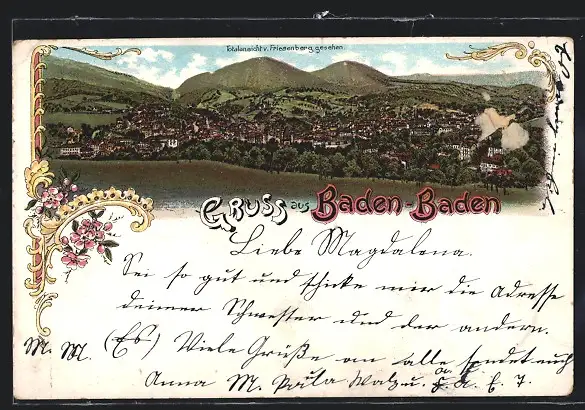 Totalansicht v. Friesenberg gesehen.
Gruss aus Baden-Baden
Liebe Magdalena.
Sei so gut und schicke mir die Adresse
deiner Schwester und der andern.
M. M. (Es) Viele Grüße an alle sendet euch
Anna M.